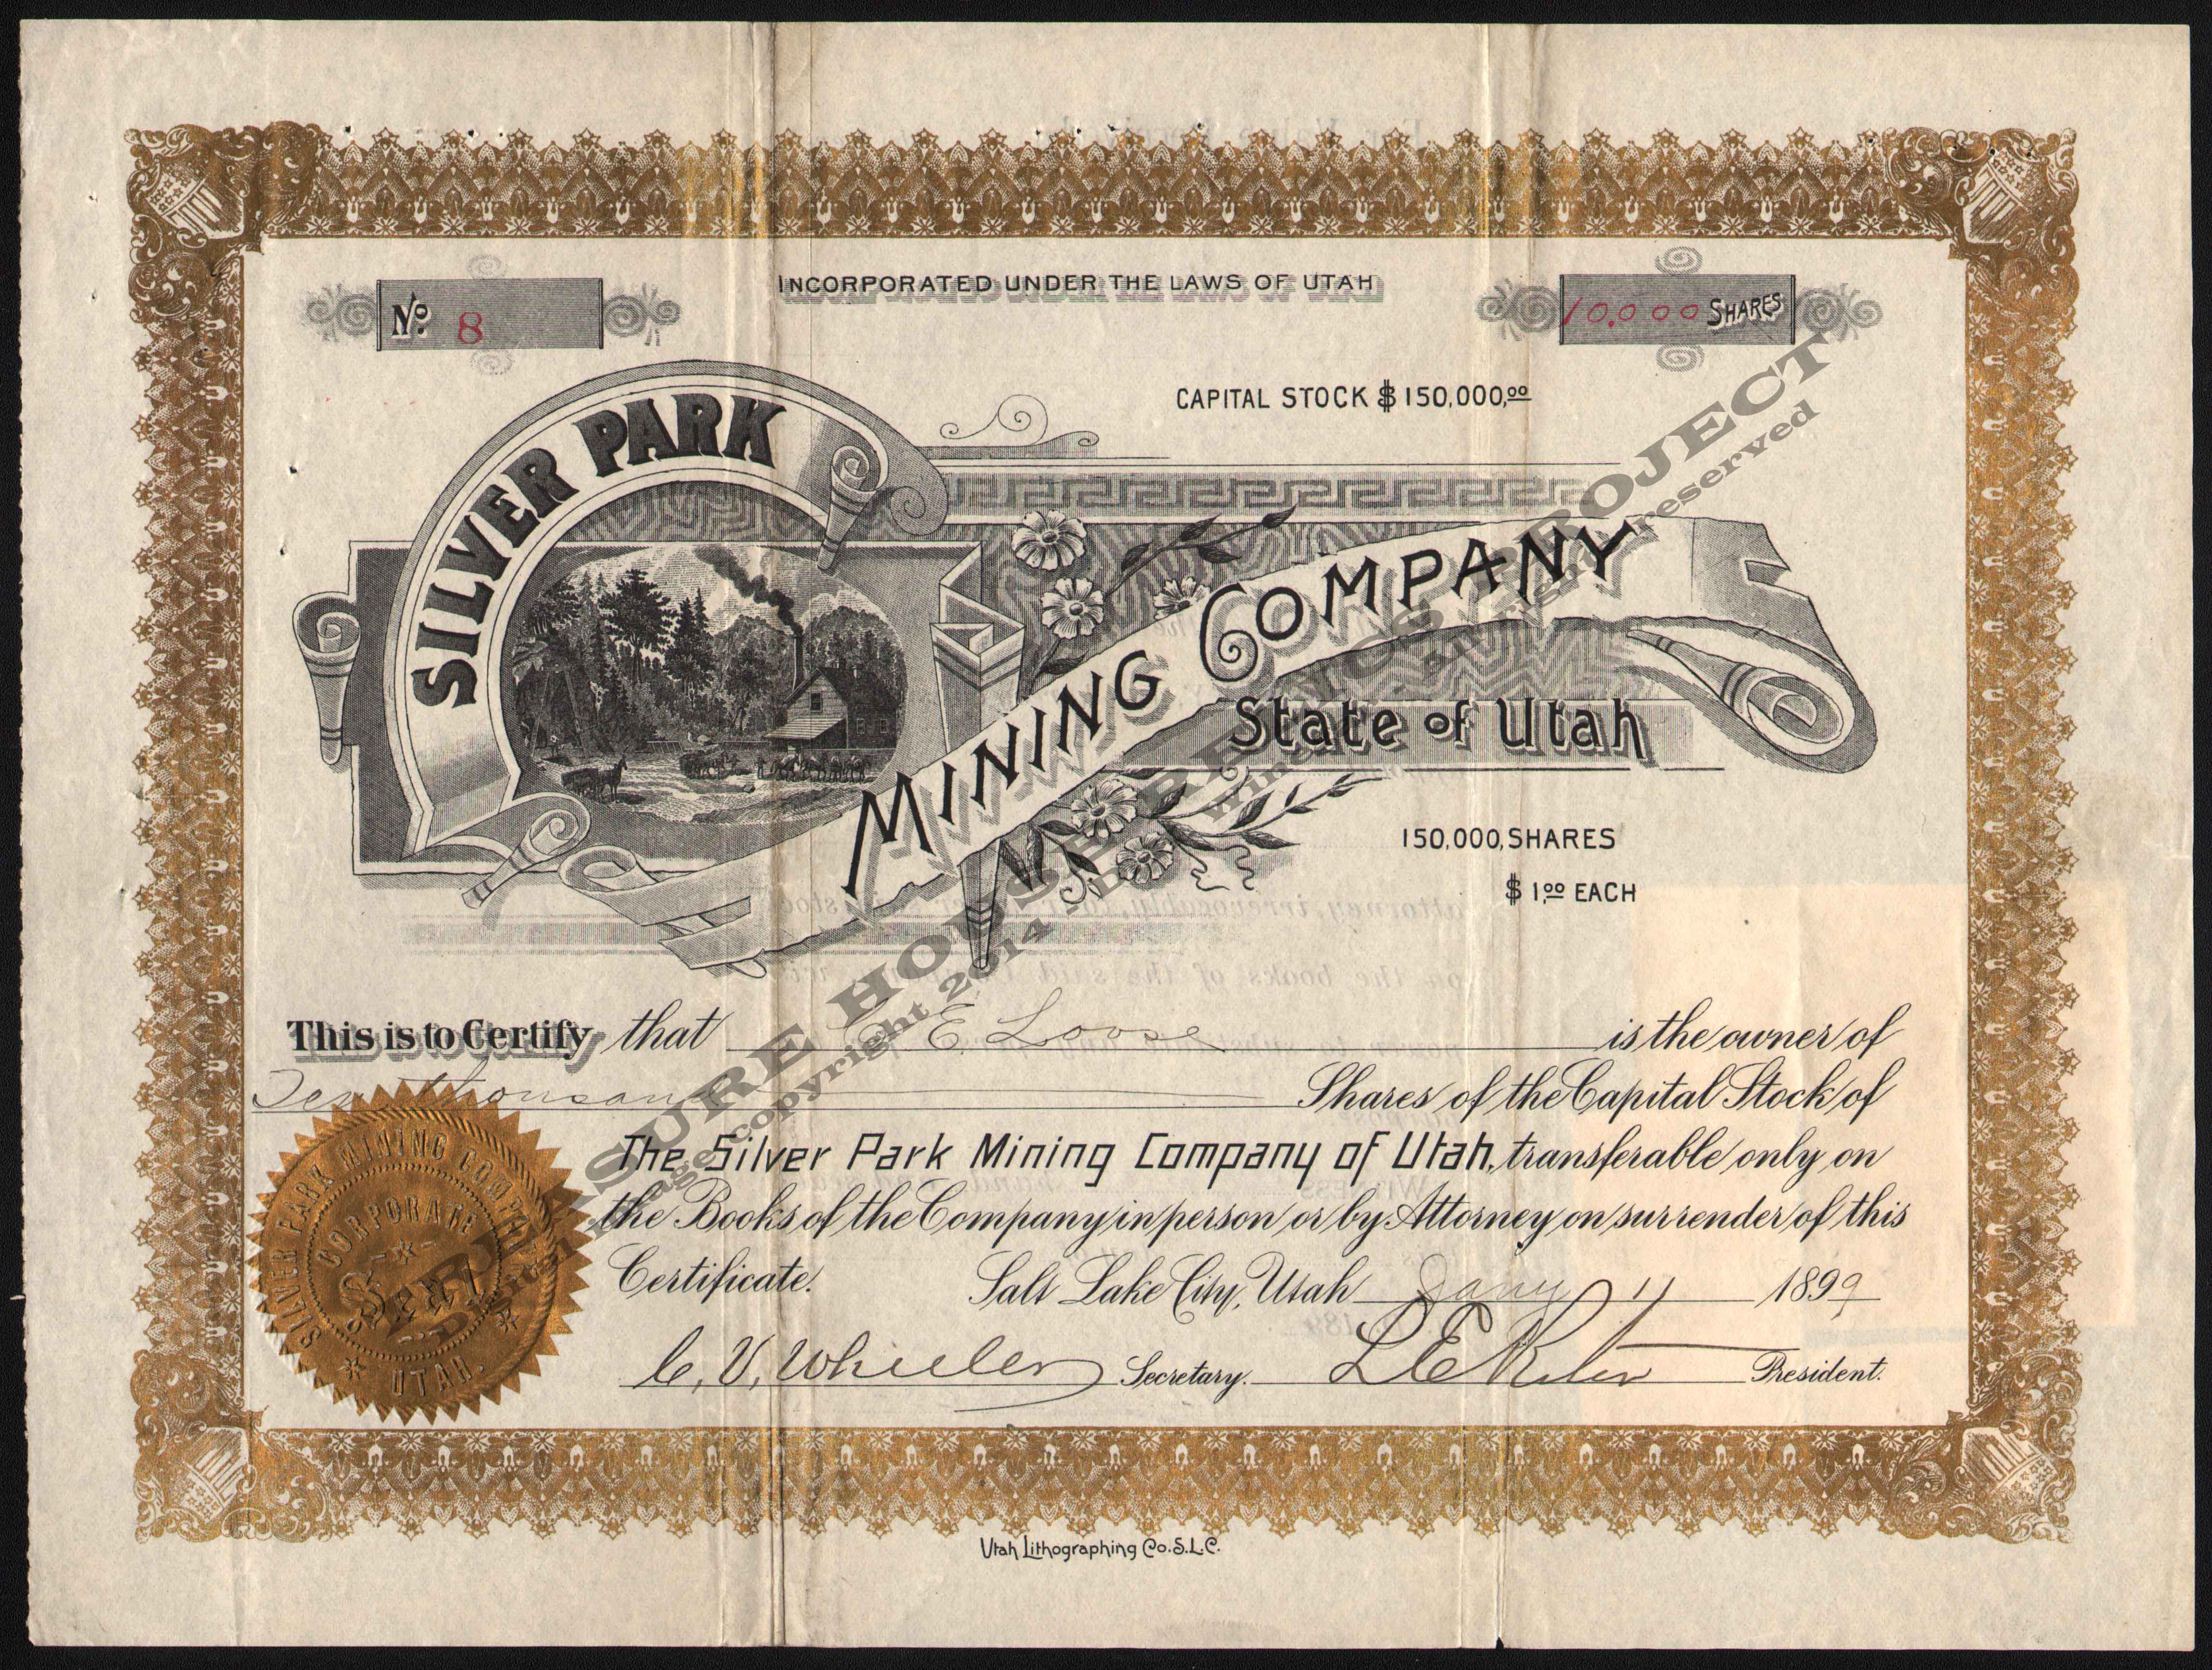 INCORPORATED UNDER THE LAWS OF UTAH
No. 8
10,000 SHARES
CAPITAL STOCK $150,000,00
SILVER PARK
MINING COMPANY
State of Utah
150,000, SHARES
$1.00 EACH
This is to Certify that C E. Loose is the owner of
Ten thousand Shares of the Capital Stock of
The Silver Park Mining Company of Utah, transferable only on
the Books of the Company in person or by Attorney on surrender of this
Certificate. Salt Lake City, Utah Jany 11 1899
C. V. Wheeler Secretary. L E President.
SILVER PARK MINING COMPANY
CORPORATE
Seal
UTAH.
Utah Lithographing Co. S.L.C.
TREASURE HOUSE RELICS PROJECT
Digital Image copyright 2014 All rights reserved